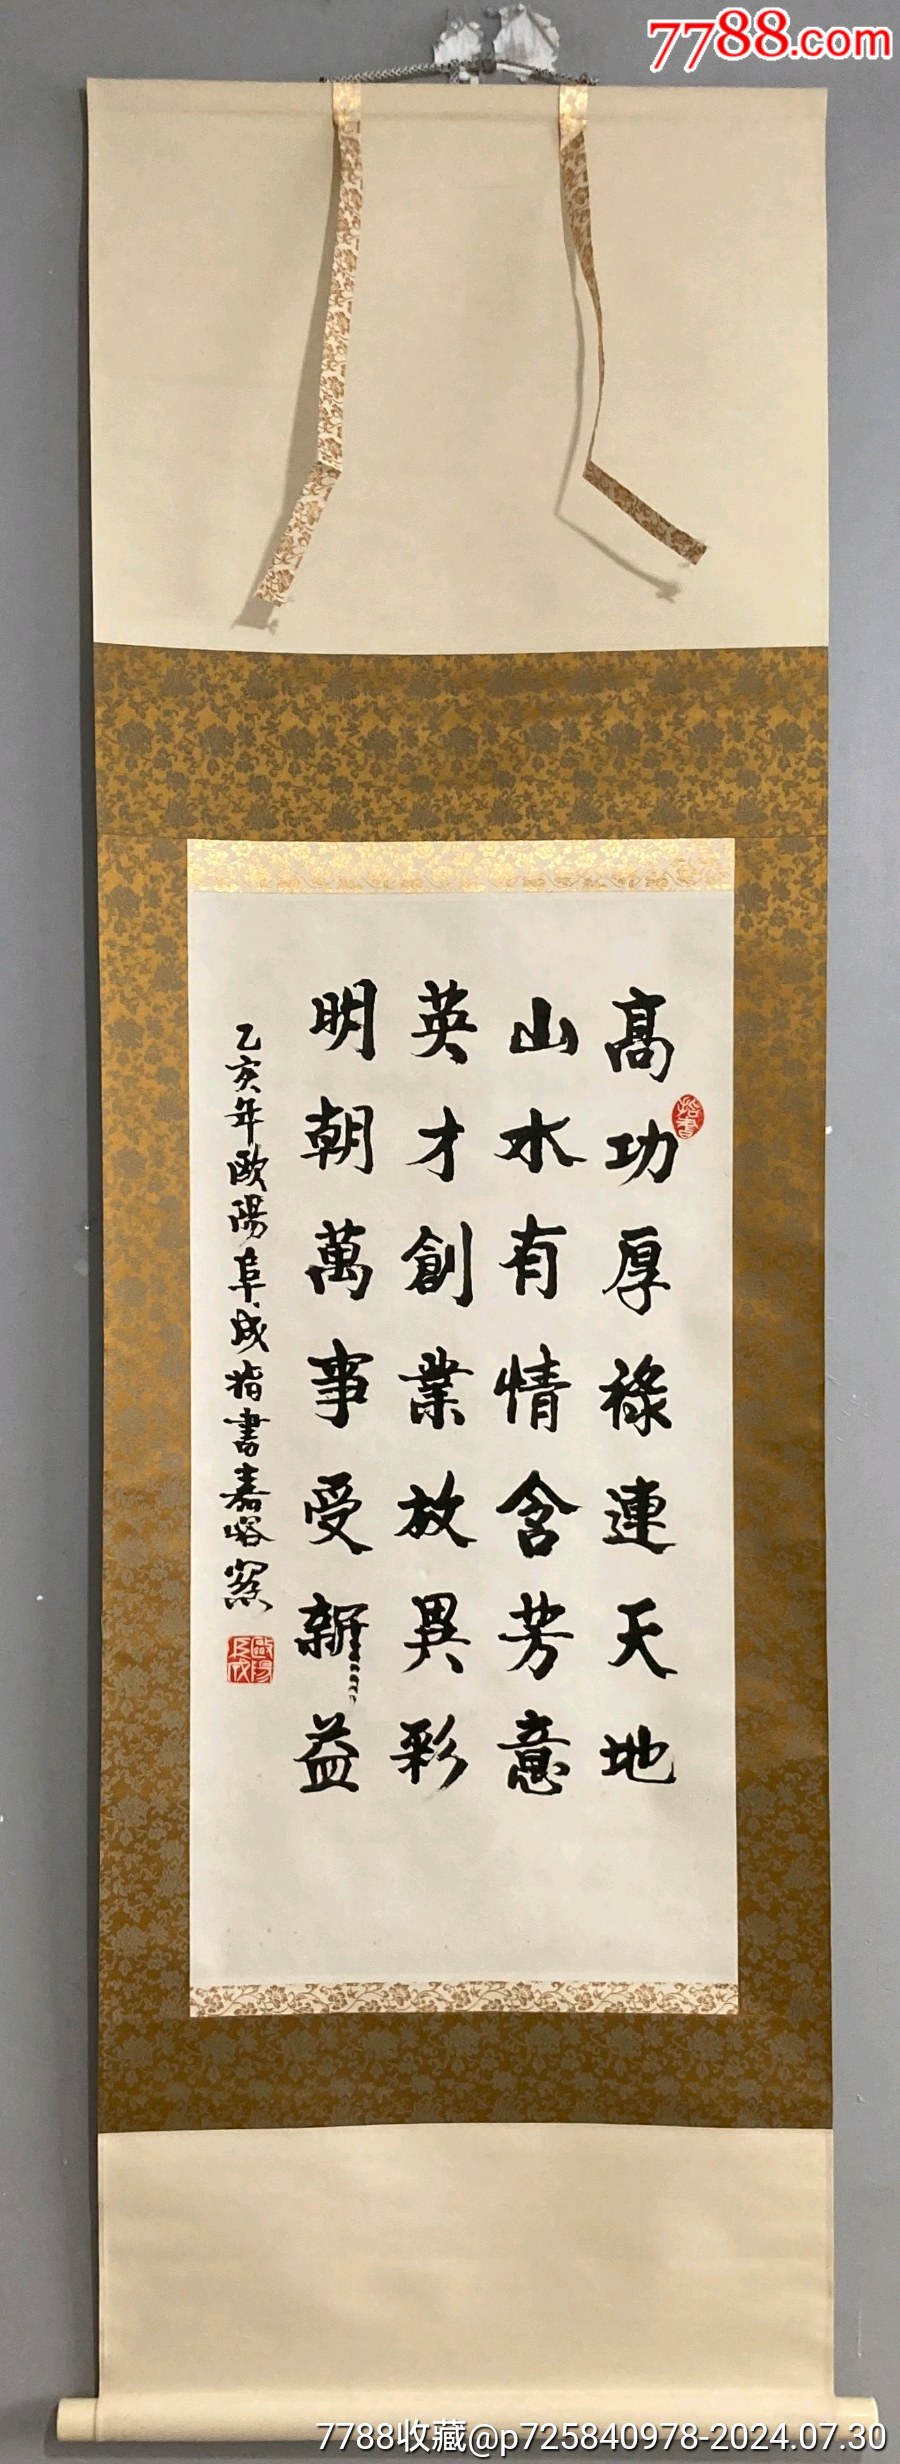 7788.com
高功厚祿連天地
山水有情含芳意
英才創業放異彩
明朝萬事受新益
乙亥年歐陽阜成指書嘉峪
指書
7788收藏@p725840978-2024.07.30